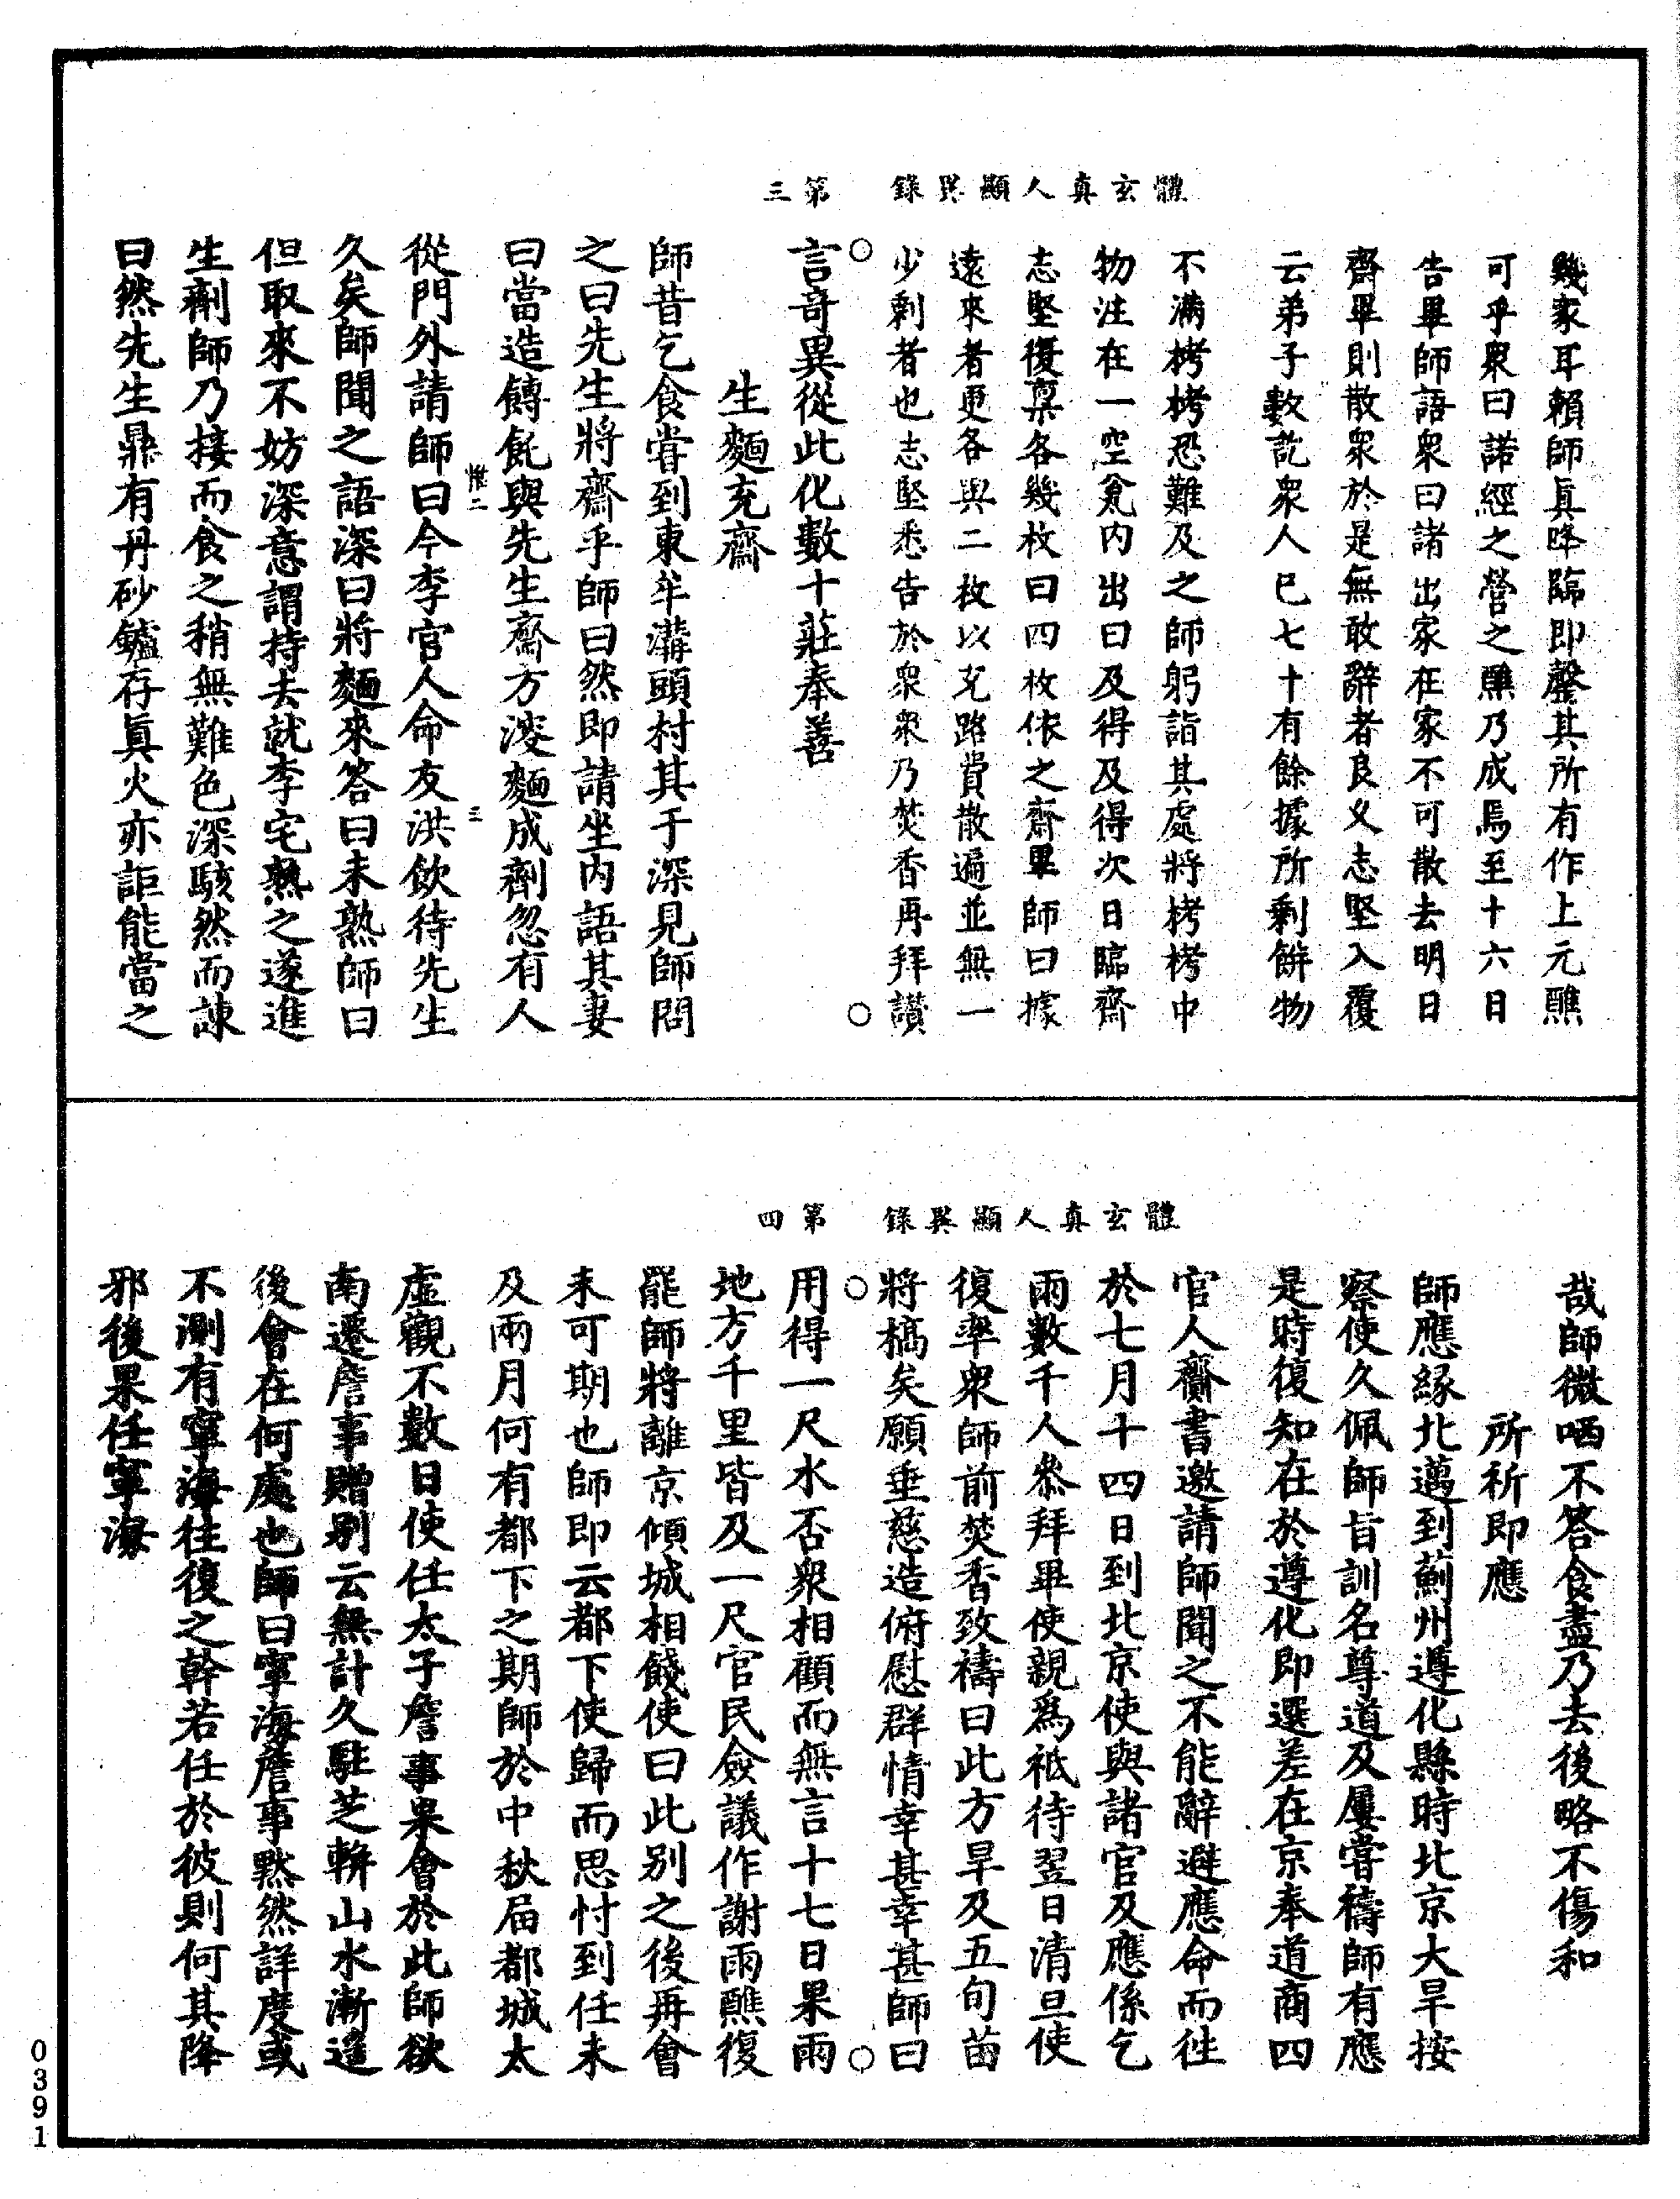 體玄真人顯異錄　第三
幾家耳賴師眞降臨即罄其所有作上元醮
可乎衆曰諾經之營之醮乃成焉至十六日
告畢師語衆曰諸出家在家不可散去明日
齋畢則散衆於是無敢辭者良乂志堅入覆
云弟子數訖衆人巳七十有餘據所剩餅物
不滿栲栲恐難及之師躬詣其處將栲栲中
物注在一空瓮内出曰及得及得次日臨齋
志堅復禀各幾枚曰四枚依之齋畢師曰據
遠來者更各與二枚以充路費散遍並無一
少剩者也志堅悉告於衆衆乃焚香再拜讃
言奇異從此化數十莊奉善
生麵充齋
師昔乞食嘗到東牟溝頭村其于深見師問
之曰先生將齋乎師曰然即請坐内語其妻
曰當造餺飥與先生齋方浚麵成劑忽有人
惟二　三
從門外請師曰今李官人命友洪飲待先生
久矣師聞之語深曰將麵來答曰未熟師曰
但取來不妨深意謂持去就李宅熟之遂進
生劑師乃接而食之稍無難色深駭然而諫
曰然先生鼎有丹砂鑪存眞火亦詎能當之
體玄真人顯異錄　第四
哉師微哂不答食盡乃去後略不傷和
所祈即應
師應緣北邁到薊州遵化縣時北京大旱按
察使久佩師旨訓名尊道及屢嘗禱師有應
是時復知在於遵化即選差在京奉道商四
官人齎書邀請師聞之不能辭避應命而往
於七月十四日到北京使與諸官及應係乞
雨數千人叅拜畢使親爲祗待翌日清旦使
復率衆師前焚香致禱曰此方旱及五旬苗
將槁矣願垂慈造俯慰群情幸甚幸甚師曰
用得一尺水否衆相顧而無言十七日果雨
地方千里皆及一尺官民僉議作謝雨醮復
罷師將離京傾城相餞使曰此別之後再會
未可期也師即云都下使歸而思忖到任未
及兩月何有都下之期師於中秋届都城太
虛觀不數日使任太子詹事果會於此師欲
南遷詹事贈別云無計久駐芝軿山水漸遥
後會在何處也師曰寧海詹事黙然詳度或
不測有寧海徃復之幹若任於彼則何其降
邪後果任寧海
0391